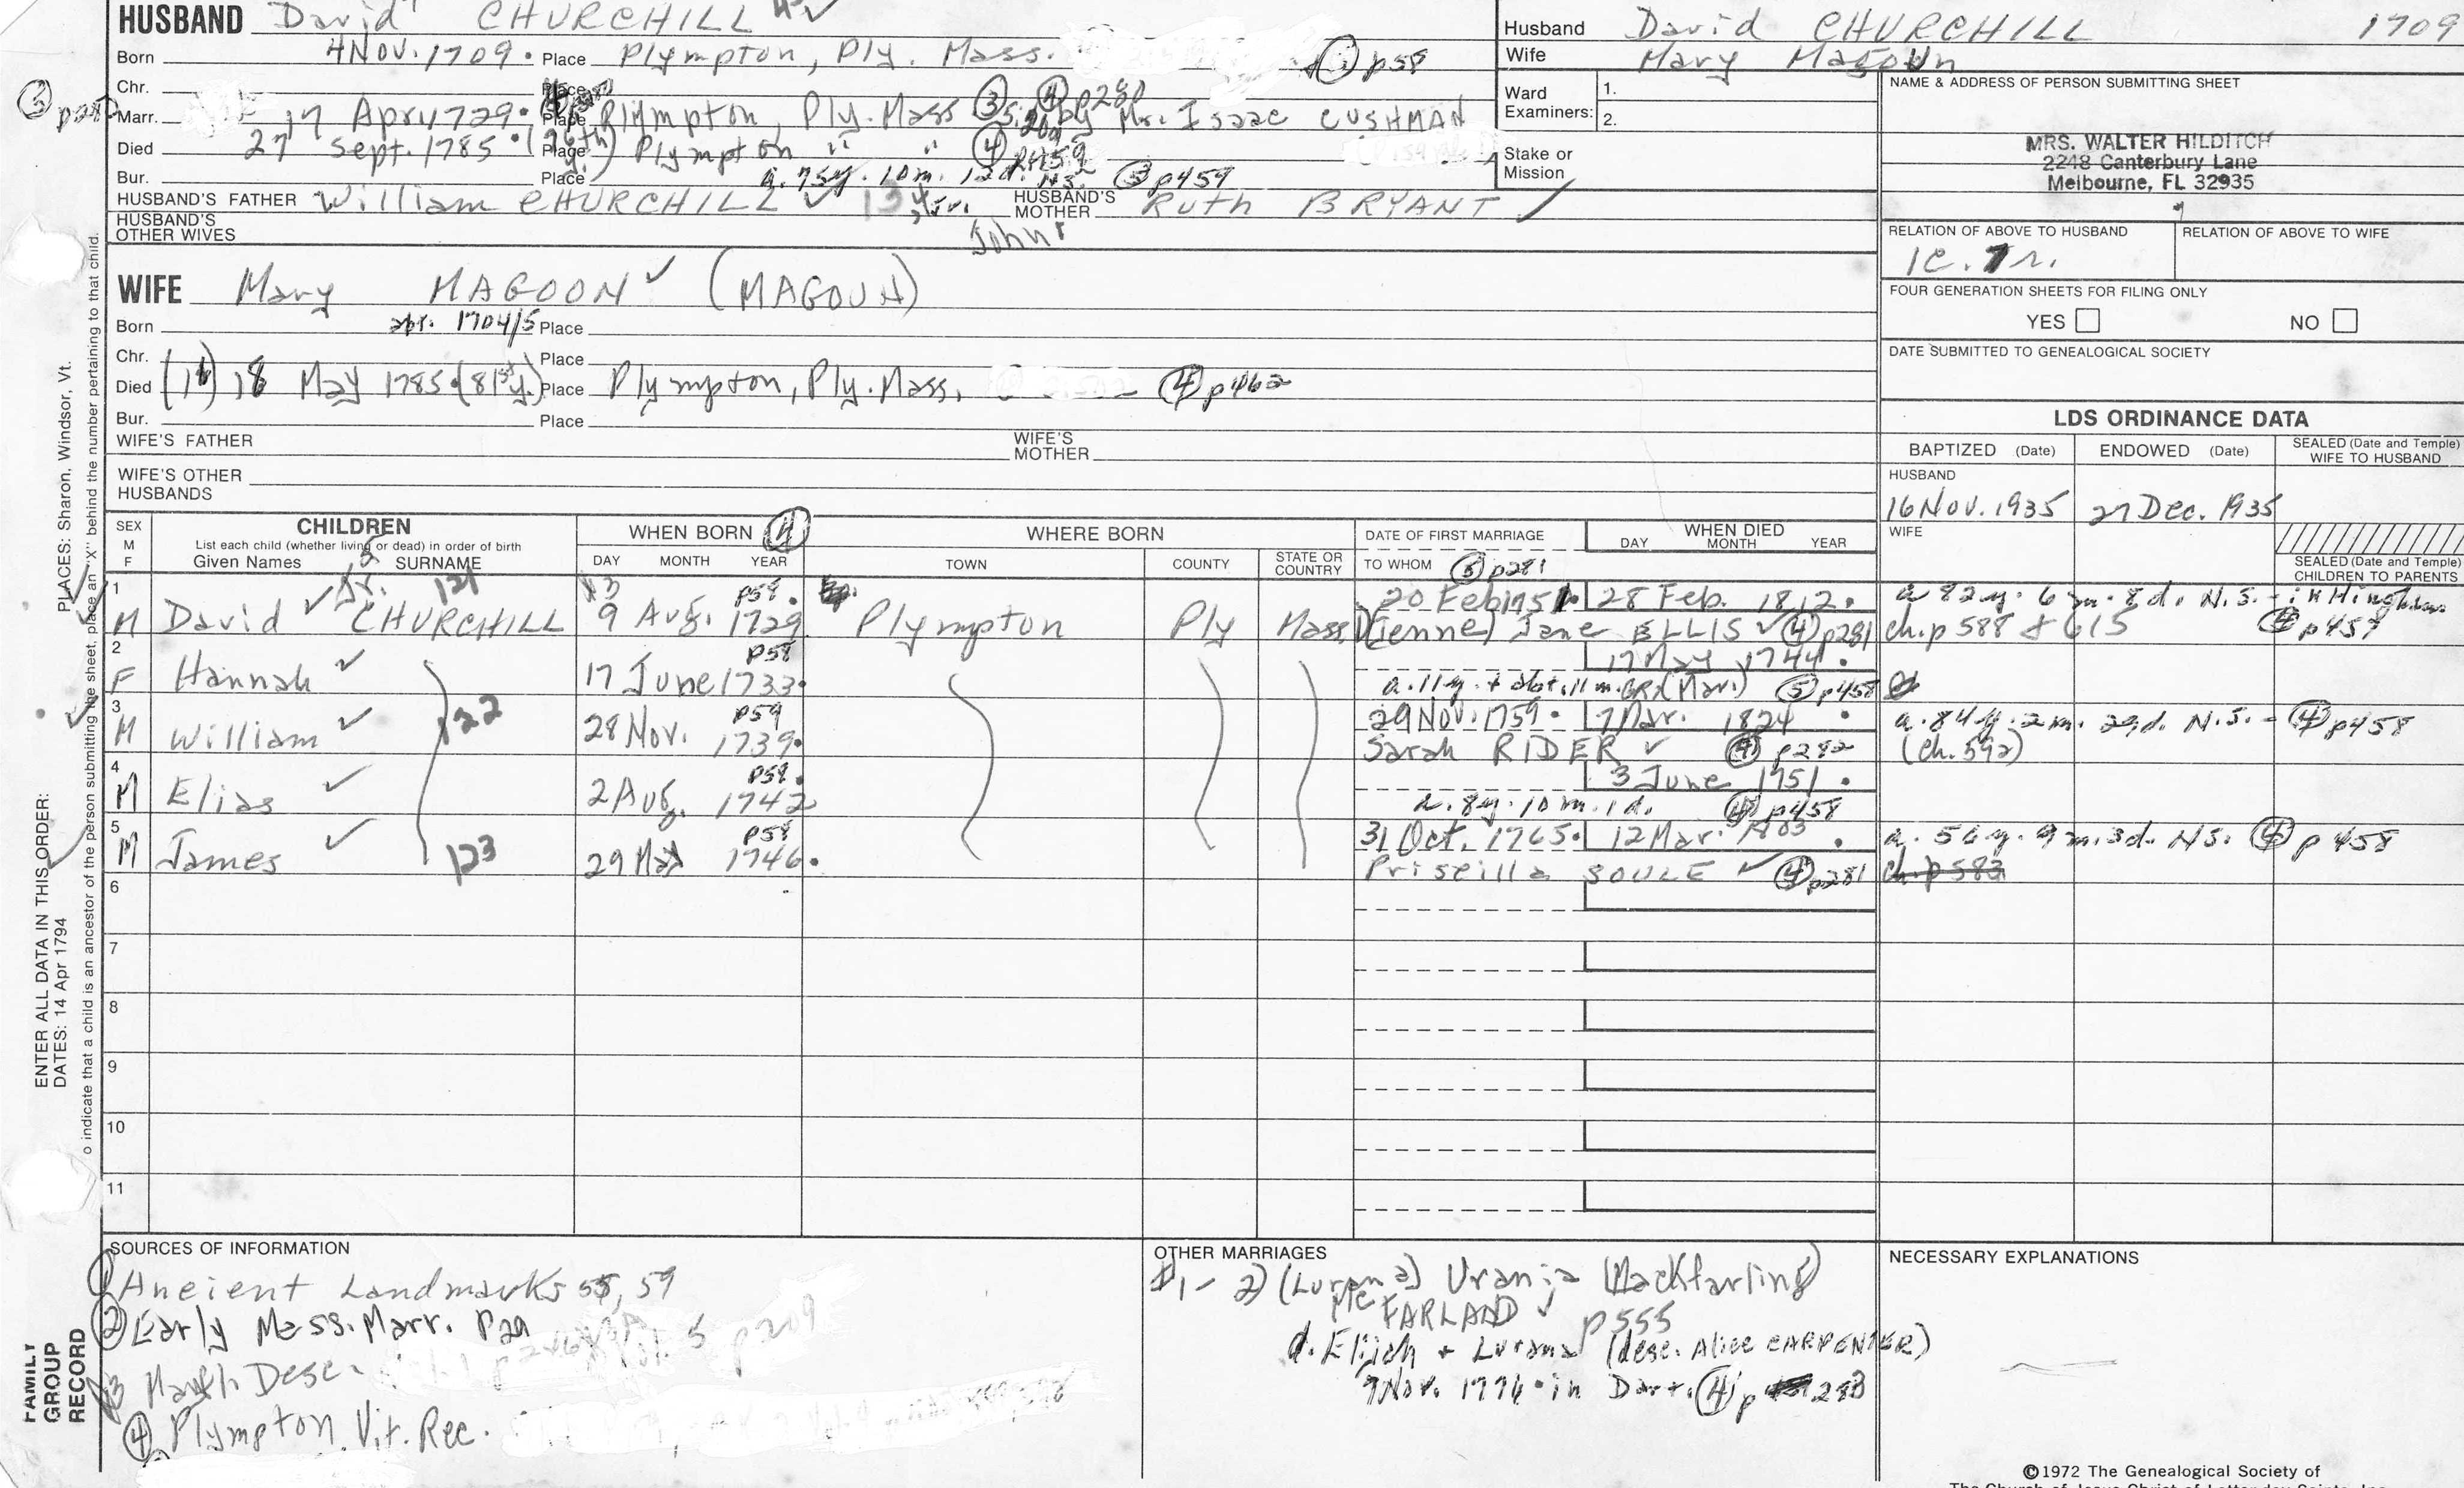 HUSBAND David CHURCHILL
Born 4 Nov. 1709. Place Plympton, Ply. Mass. ① p58
Chr. Place
Marr. 17 Apr 1729. Place Plimpton, Ply. Mass ③ ④ p280 by Mr. Isaac CUSHMAN
Died 27 Sept. 1785. (26th) Place Plympton " " ④
Bur. Place a. 75y. 10m. 12d. N.S. p459
HUSBAND'S FATHER William CHURCHILL HUSBAND'S MOTHER Ruth BRYANT
John
HUSBAND'S OTHER WIVES
WIFE Mary MAGOON (MAGOUN)
Born abt. 1704/5 Place
Chr. Place
Died 18 May 1785. (81st y.) Place Plympton, Ply. Mass. ④ p462
Bur. Place
WIFE'S FATHER WIFE'S MOTHER
WIFE'S OTHER HUSBANDS
Husband David CHURCHILL 1709
Wife Mary Magoun
Ward Examiners: 1.
2.
Stake or Mission
NAME & ADDRESS OF PERSON SUBMITTING SHEET
MRS. WALTER HILDITCH
2248 Canterbury Lane
Melbourne, FL 32935
RELATION OF ABOVE TO HUSBAND RELATION OF ABOVE TO WIFE
1c. 7r.
FOUR GENERATION SHEETS FOR FILING ONLY
YES NO
DATE SUBMITTED TO GENEALOGICAL SOCIETY
LDS ORDINANCE DATA
BAPTIZED (Date) ENDOWED (Date) SEALED (Date and Temple) WIFE TO HUSBAND
HUSBAND
16 Nov. 1935 27 Dec. 1935
WIFE
SEALED (Date and Temple) CHILDREN TO PARENTS
SEX M F
CHILDREN
List each child (whether living or dead) in order of birth
Given Names SURNAME
WHEN BORN ④
DAY MONTH YEAR
WHERE BORN
TOWN COUNTY STATE OR COUNTRY
DATE OF FIRST MARRIAGE
TO WHOM p281
WHEN DIED
DAY MONTH YEAR
1 p58 20 Feb 1751. 28 Feb. 1812. a 82y. 6m. 8d. N.S. - in Hingham
M David Jr. CHURCHILL 121 9 Aug. 1729 Plympton Ply Mass (Jenne) Jane ELLIS ④ p281 ch. p 588 & 615 p457
2 p58 17 May 1744.
F Hannah 17 June 1733. a. 11y. + abt. 11 m. p458
3 p59 29 Nov. 1759. 7 Mar. 1824 a. 84y. 2m. 29d. N.S. - ④ p458
M William 122 28 Nov. 1739. Sarah RIDER ④ p282 (ch. 592)
4 p59 3 June 1751.
M Elias 2 Aug. 1742 a. 8y. 10m. 1d. ④ p458
5 p58 31 Oct. 1765. 12 Mar. 1803 a. 56y. 9m. 3d. N.S. ④ p 458
M James 123 29 May 1746. Priscilla SOULE ④ p281 ch. p 583
6
7
8
9
10
11
SOURCES OF INFORMATION
① Ancient Landmarks 58, 59
② Early Mass. Marr.
3 Desc.
④ Plympton Vit. Rec.
OTHER MARRIAGES
#1 - 2) (Lurana) Urania (Mackfarling)
Mc FARLAND p555
d. Elijah + Lurana (desc. Alice CARPENTER)
7 Nov. 1776. in Dart. ④ p 283
NECESSARY EXPLANATIONS
ENTER ALL DATA IN THIS ORDER:
DATES: 14 Apr 1794 PLACES: Sharon, Windsor, Vt.
o indicate that a child is an ancestor of the person submitting the sheet, place an "X" behind the number pertaining to that child.
FAMILY GROUP RECORD
©1972 The Genealogical Society of